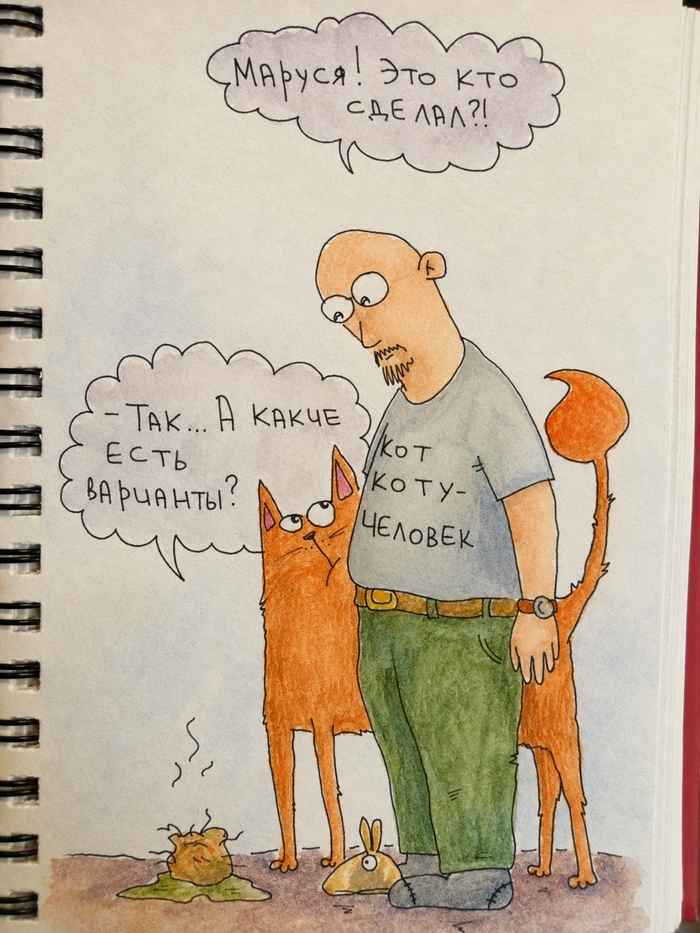 Маруся! Это кто
сделал?!
- Так... А какие
есть
варианты?
Кот
коту-
человек